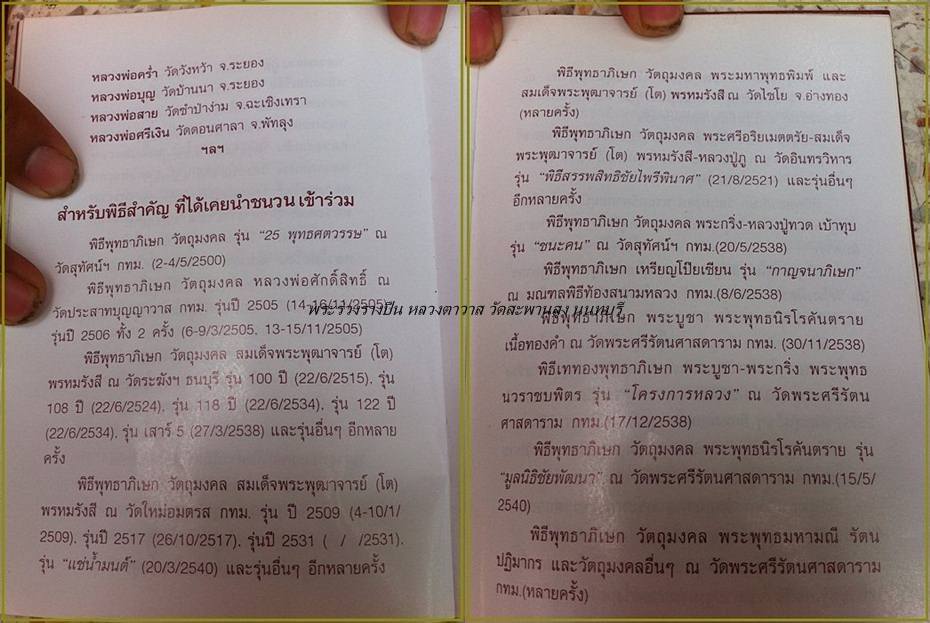 หลวงพ่อคร่ำ วัดวังหว้า จ.ระยอง
หลวงพ่อบุญ วัดบ้านนา จ.ระยอง
หลวงพ่อสาย วัดซำป่างาม จ.ฉะเชิงเทรา
หลวงพ่อศรีเงิน วัดดอนศาลา จ.พัทลุง
ฯลฯ
สำหรับพิธีสำคัญ ที่ได้เคยนำชนวน เข้าร่วม
พิธีพุทธาภิเษก วัตถุมงคล รุ่น “25 พุทธศตวรรษ” ณ
วัดสุทัศน์ฯ กทม. (2-4/5/2500)
พิธีพุทธาภิเษก วัตถุมงคล หลวงพ่อศักดิ์สิทธิ์ ณ
วัดประสาทบุญญาวาส กทม. รุ่นปี 2505 (14-16/11/2505)
รุ่นปี 2506 ทั้ง 2 ครั้ง (6-9/3/2505. 13-15/11/2505)
พิธีพุทธาภิเษก วัตถุมงคล สมเด็จพระพุฒาจารย์ (โต)
พรหมรังสี ณ วัดระฆังฯ ธนบุรี รุ่น 100 ปี (22/6/2515). รุ่น
108 ปี (22/6/2524). รุ่น 118 ปี (22/6/2534). รุ่น 122 ปี
(22/6/2534). รุ่น เสาร์ 5 (27/3/2538) และรุ่นอื่นๆ อีกหลาย
ครั้ง
พิธีพุทธาภิเษก วัตถุมงคล สมเด็จพระพุฒาจารย์ (โต)
พรหมรังสี ณ วัดใหม่อมตรส กทม. รุ่น ปี 2509 (4-10/1/
2509). รุ่นปี 2517 (26/10/2517). รุ่นปี 2531 ( / /2531).
รุ่น “แช่น้ำมนต์” (20/3/2540) และรุ่นอื่นๆ อีกหลายครั้ง
พิธีพุทธาภิเษก วัตถุมงคล พระมหาพุทธพิมพ์ และ
สมเด็จพระพุฒาจารย์ (โต) พรหมรังสี ณ วัดไชโย จ.อ่างทอง
(หลายครั้ง)
พิธีพุทธาภิเษก วัตถุมงคล พระศรีอริยเมตตรัย-สมเด็จ
พระพุฒาจารย์ (โต) พรหมรังสี-หลวงปู่ภู ณ วัดอินทรวิหาร
รุ่น “พิธีสรรพสิทธิชัยไพรีพินาศ” (21/8/2521) และรุ่นอื่นๆ
อีกหลายครั้ง
พิธีพุทธาภิเษก วัตถุมงคล พระกริ่ง-หลวงปู่ทวด เบ้าทุบ
รุ่น “ชนะคน” ณ วัดสุทัศน์ฯ กทม.(20/5/2538)
พิธีพุทธาภิเษก เหรียญโป๊ยเซียน รุ่น “กาญจนาภิเษก”
ณ มณฑลพิธีท้องสนามหลวง กทม.(8/6/2538)
พระร่วงรางปืน หลวงตาวาส วัดสะพานสูง นนทบุรี
พิธีพุทธาภิเษก พระบูชา พระพุทธนิรโรคันตราย
เนื้อทองคำ ณ วัดพระศรีรัตนศาสดาราม กทม. (30/11/2538)
พิธีเททองพุทธาภิเษก พระบูชา-พระกริ่ง พระพุทธ
นวราชบพิตร รุ่น “โครงการหลวง” ณ วัดพระศรีรัตน
ศาสดาราม กทม.(17/12/2538)
พิธีพุทธาภิเษก วัตถุมงคล พระพุทธนิรโรคันตราย รุ่น
“มูลนิธิชัยพัฒนา” ณ วัดพระศรีรัตนศาสดาราม กทม.(15/5/
2540)
พิธีพุทธาภิเษก วัตถุมงคล พระพุทธมหามณี รัตน
ปฏิมากร และวัตถุมงคลอื่นๆ ณ วัดพระศรีรัตนศาสดาราม
กทม.(หลายครั้ง)